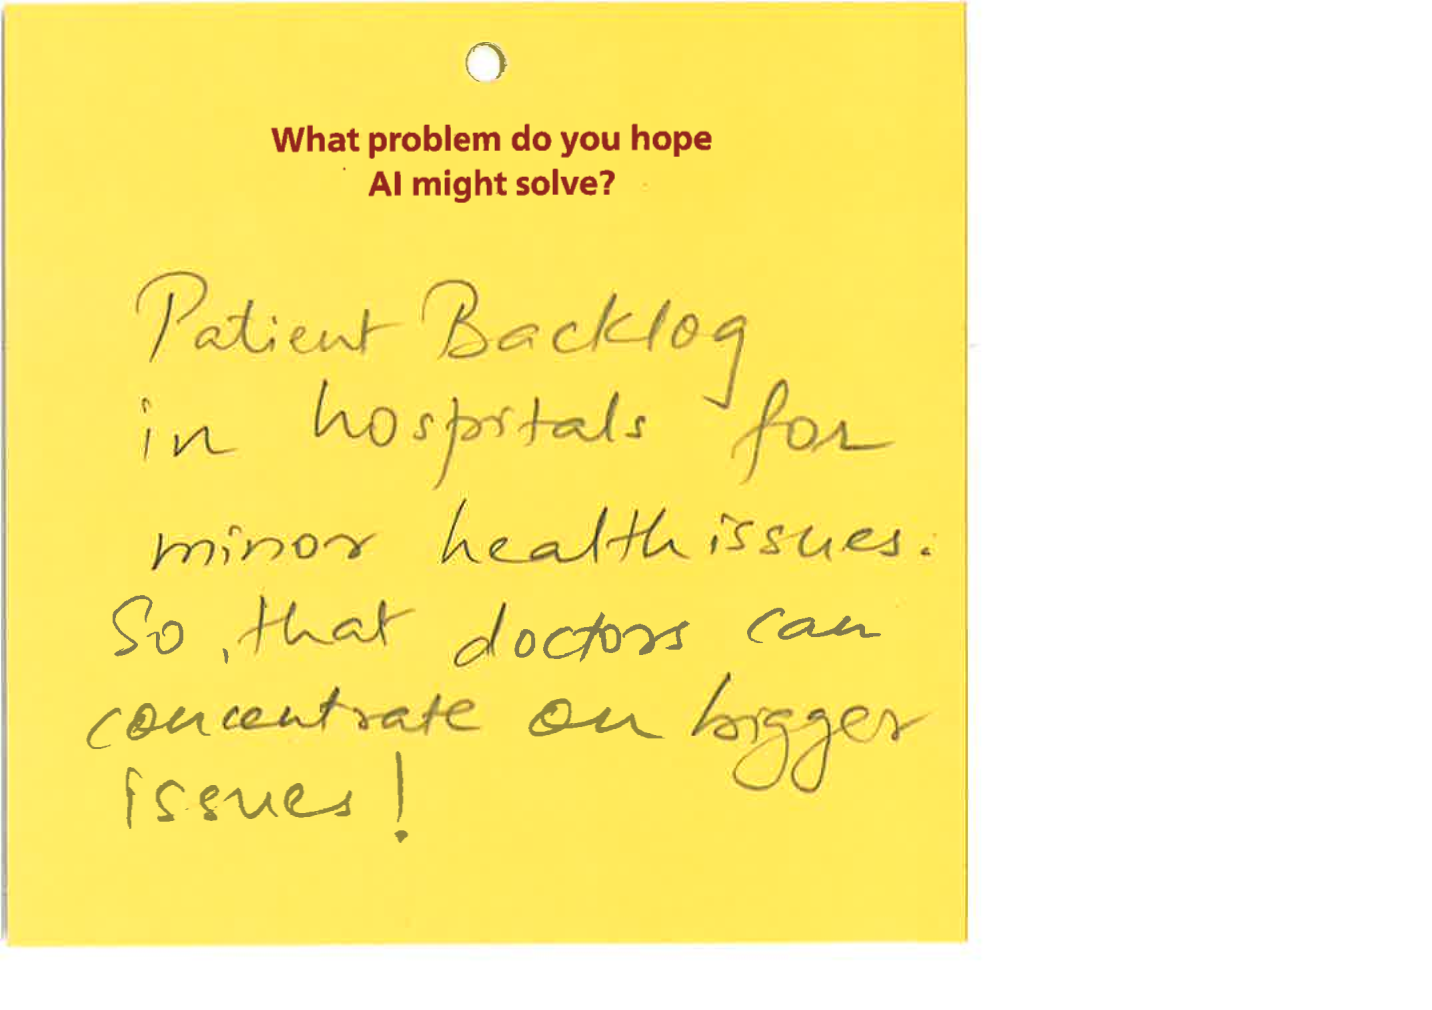 What problem do you hope
AI might solve?
Patient Backlog
in hospitals for
minor health issues.
So, that doctors can
concentrate on bigger
issues!